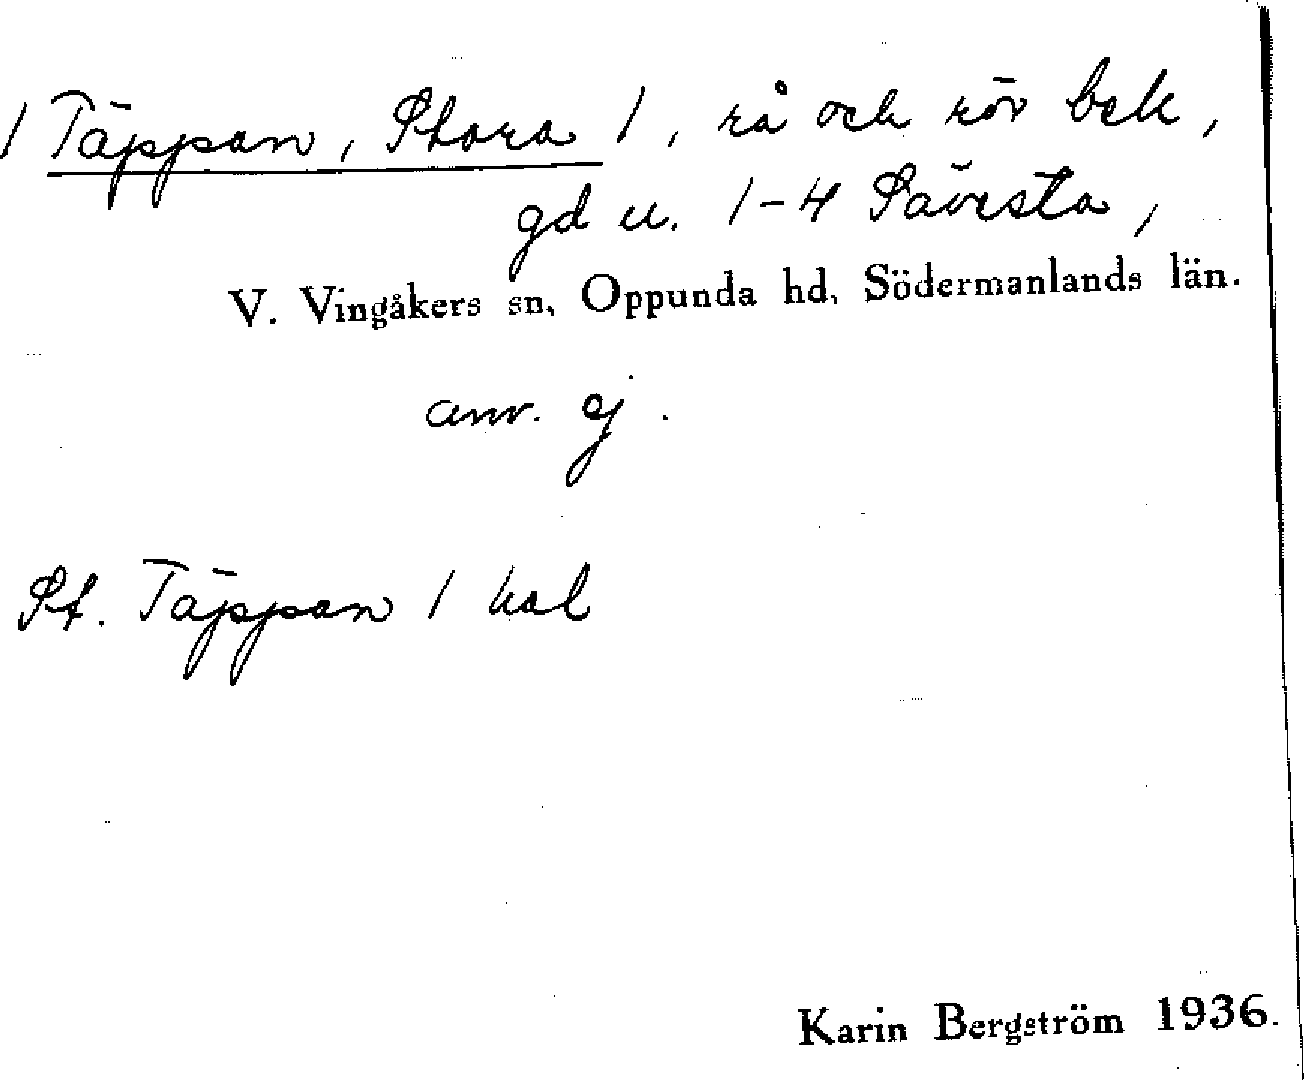 / Täppan, Stora /, rå och rör bek,
gd u. 1-4 Sävsta,
V. Vingåkers sn, Oppunda hd, Södermanlands län.
anv. ej.
St. Täppan / kal
Karin Bergström 1936.